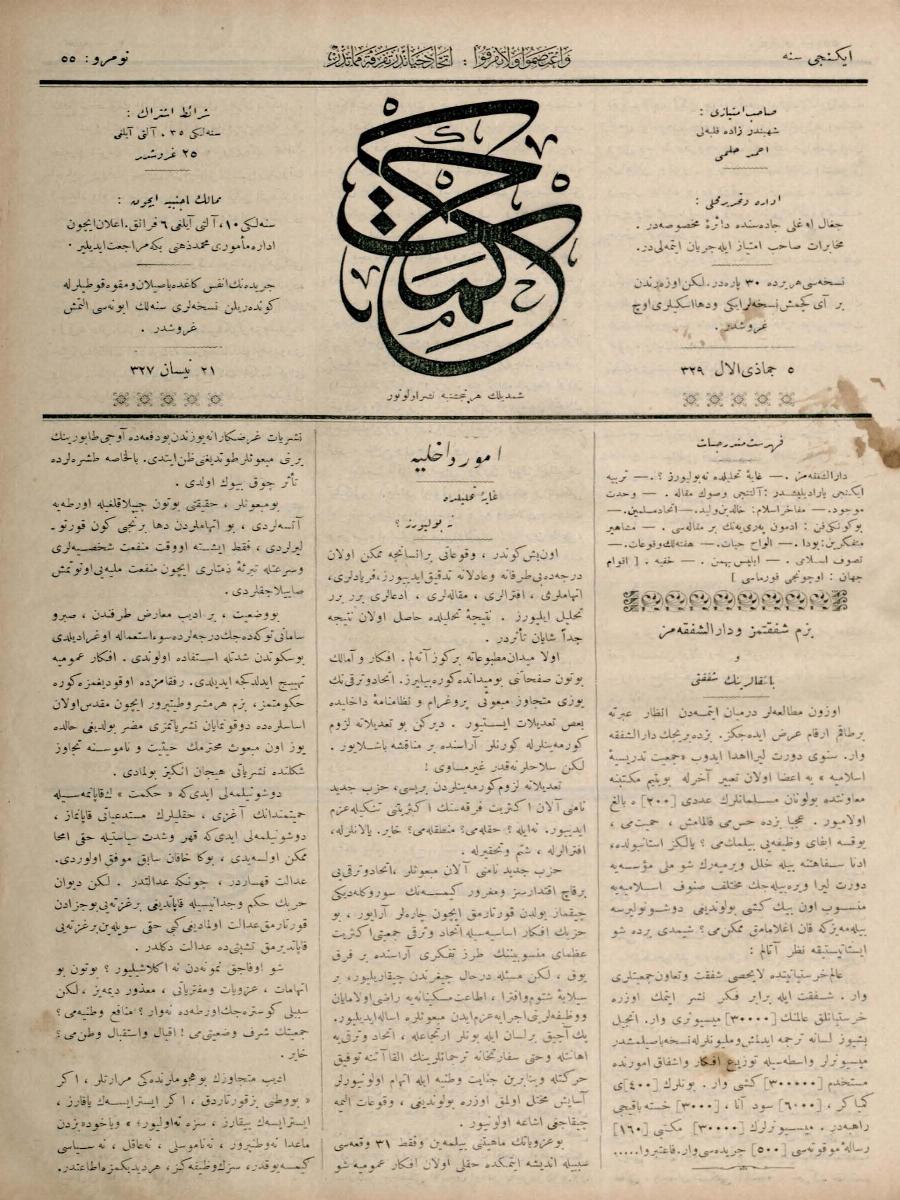 ایكنجی سنه
واعتصموا ولا تفرقوا : اتحاد حیاتدر تفرقه مماتدر
نومرو : ٥٥
صاحب امتیازی :
شهبندر زاده فلبه‌لی
احمد حلمی
اداره و تحریر محلی :
جغال اوغلی جاده‌سنده دائرۀ مخصوصه‌در .
مخابرات صاحب امتیاز ایله جریان ایتمه‌لی‌در .
نسخه‌سی هر یرده ٣٠ پاره‌در . لكن اوزرندن
بر آی كچمش نسخه‌لر ایكی و دها اسكیلری اوچ
غروشدر .
٥ جماذی الال ٣٢٩
حكمت
شمدیلك هر پنجشنبه نشر اولونور
شرائط اشتراك :
سنه‌لكی ٣٥ ، آلتی آیلغی
٢٥ غروشدر
ممالك اجنبیه ایچون :
سنه‌لكی ١٠ ، آلتی آیلغی ٦ فرانق . اعلان ایچون
اداره مأموری محمد ذهنی بكه مراجعت ایدیلیر .
جریده‌نك انفس كاغده باصیلان و مقوه قوطیلرله
كوندریلن نسخه‌لری سنه‌لك ابونه‌سی التمش
غروشدر .
٢١ نیسان ٣٢٧
فهرست مندرجات
دارالشفقه‌مز . — غایۀ تحلیلده نه‌بولیورز ؟ . — تربیه
ایكنجی یارادیلیشدر : آلتنجی وصوك مقاله . — وحدت
موجود . — مفاخر اسلام : خالدبن ولید . — اتحاد مسلمین . —
بوكونكی فن : ادمون په‌ری‌یه‌نك بر مقاله‌سی . — مشاهیر
متفكرین : بودا . — الواح حیات . — هفته‌لك وقوعات . —
تصوف اسلامی . — ابلیس بهمن . — خفیه . [ اقوام
جهان : اوچونجی فورماسی ]
بزم شفقتمز ودارالشفقه‌مز
و
یانقالرینك شفقتی
اوزون مطالعه‌لر درمیان ایتمه‌دن انظار عبرته
برطاقم ارقام عرض ایده‌جكز . بزده بریجك دارالشفقه
وار . سنوی دورت لیرا اهدا ایدوب « جمعیت تدریسیۀ
اسلامیه » یه اعضا اولان تعبیر آخرله بویتیم مكتبنه
معاونتده بولونان مسلمانلرك عددی [٢٠٠] ه بالغ
اولامیور . عجبا بزده حس‌می قالمامش ، حمیت‌می ،
یوقسه ایفای وظیفه‌یی بیلمك‌می ؟ یالكز استانبولده،
ادنا سفاهتنه بیله خلل ویرمیه‌رك شو ملی مؤسسه‌یه
دورت لیرا ویره‌بیله‌جك مختلف صنوف اسلامیه‌یه
منسوب اون بیك كشی بولوندیغی دوشونولیرسه
بیله‌مه‌یز كه قان اغلامامق ممكن‌می ؟ شیمدی برده شو
ایستاتیستیقه نظر آتالم :
عالم خرستیانیتده لایحصی شفقت وتعاون جمعیتلری
وار . شفقت ایله برابر فكر نشر ایتمك اوزره
خرستیانلق عالمنك [٣٠٠٠٠] میسیونری وار . انجیل
بشیوز لسانه ترجمه ایدلمش وملیونلرله نسخه باصیلمشدر
میسیونرلر واسطه‌سیله توزیع افكار واشفاق امورنده
مستخدم [٣٠٠٠٠٠] كشی وار . بونلرك [٤٠٠] ی
كیاكر ، [٦٠٠٠] سود آنا ، [٣٠٠٠] خسته باقیجی
راهبه‌در . میسیونرلرك [٣٠٠٠٠] مكتبی [١٦٠]
رساله موقوته‌سی [٥٠٠] جریده‌سی وار . فاعتبروا . . . . .
امور داخلیه
غایۀ تحلیلده
نه بولیورز ؟
اون‌بش كوندر ، وقوعاتی برانسانجه ممكن اولان
درجه‌ده بی‌طرفانه وعادلانه تدقیق ایدییورز، فریادلری،
اتهاملرمی ، افترالری ، مقاله‌لری ، ادعالری برر برر
تحلیل ایلیورز . نتیجۀ تحلیلده حاصل اولان نتیجه
جداً شایان تأثردر .
اولا میدان مطبوعاته بركوز آتهلم . افكار و آمالك
بوتون صفحاتنی بومیدانده كوره‌بیلیرز . اتحاد وترقی‌نك
یوزی متجاوز مبعوثی پروغرام و نظامنامۀ داخلیده
بعض تعدیلات ایستییور . دیركن بو تعدیلاته لزوم
كورمه‌ینلرله كورنلر آراسنده بر مناقشه باشلایور .
لكن سلاحلر نه‌قدر غیرمساوی !
تعدیلاته لزوم كورمه‌ینلردن بریسی، حزب جدید
نامنی آلان اكثریت فرقه‌سنك اكثریتی تشكیله عزم
ایدییور . نه‌ایله ؟ حقله‌می ؟ منطقله‌می ؟ خایر . یالانلرله،
افترالرله ، شتم وتحقیرله .
حزب جدید نامنی آلان مبعوثلر ، اتحاد وترقی‌یی
برقاچ اقتدارسز ومغرور كیمسه‌نك سوروكله‌دیكی
چیقماز یولدن قورتارمق ایچون چاره‌لر آرایور ، بو
حزبك افكار اساسیه‌سیله اتحاد وترقی جمعیتی اكثریت
عظمای منسوبیننك طرز تفكری آراسنده بر فرق
یوق ، لكن مسئله درحال چیغرندن چیقاریلیور، بر
سیلابۀ شتوم وافترا ، اطاعت مسكینانه‌یه راضی اولامایان
و وظیفه‌لرینی اجرایه عزم ایدن مبعوثلره اساله ایدیلیور.
پك آجیق برلسان ایله بونلر ارتجاعله ، اتحاد وترقی‌یه
اهانتله وحتی سفارتخانه ترجمانلرینك القاآتنه توفیق
حركتله وبنابرین جنایت وطنیه ایله اتهام اولونیورلر
آسایش مختل اولمق اوزره بولوندیغی ، وقوعات الیمه
چیقاجغی اشاعه اولونیور .
بوعزویاتك ماهیتی بیلمه‌ین وفقط ٣١ وقعه‌سی
سببیله اندیشه ایتمكده حقلی اولان افكار عمومیه شو
نشریات غرضكارانه یوزندن بودفعه‌ده آوجی طابورینك
برینی مبعوثلر طوتدیغنی ظن ایتدی . بالخاصه طشره‌لرده
تأثر چوق بیوك اولدی .
بومبعوثلر ، حقیقتی بوتون چیپلاقلغیله اورطه‌یه
آتسه‌لردی ، بو اتهاملردن دها برنجی كون قورتو-
لیرلردی ، فقط ایشته اووقت منفعت شخصیه‌لری
وسرعتله تبرئۀ ذمتلری ایچون منفعت ملیه‌یی اونوتمش
صاییلاجقلردی .
بووضعیت ، بر ادیب معارض طرفندن ، صبرو
سامانی توكه‌ده‌جك درجه‌لرده سوء استعماله اوغرادیلدی
بوسكوتدن شدتله استفاده اولوندی . افكار عمومیه
تهییج ایدلدكجه ایدیلدی . رفقامزده اوقودیغمزه كوره
حكومتمز، بزم هرمشر وطیتپرور ایچون مقدس اولان
اساسلره‌ده دوقونمایان نشریاتمزی مضر بولدیغی حالده
یوز اون مبعوث محترمك حیثیت و ناموسنه تجاوز
شكلنده نشریاتی هیجان انكیز بولمادی .
دوشونیلمه‌لی ایدی‌كه « حكمت » ك قاپاتمه‌سیله
حمیتمندانك آغزی ، حقلیلرك مستدعیاتی قاپانماز ،
دوشونیلمه‌لی ایدی‌كه قهر وشدت سیاستیله حقی امحا
ممكن اولسه‌یدی ، بوكا خاقان سابق موفق اولوردی.
عدالت قهاردر ، چونكه عدالتدر . لكن دیوان
حربك حكم وجدانیسیله قاپاندیغی برغزته‌یی بوجزادن
قورتارمق عدالت اولمادیغی كبی حقی سویله‌ین برغزته‌یی
قاپاتدیرمق تشبثی‌ده عدالت دكلدر .
شو اوفاجق نمونه‌دن نه اكلاشیلیور ؟ بوتون بو
اتهامات ، عزویات ومفتریاتی ، معذور دیمه‌یز ، لكن
سببلی كوستره‌جك اورطه‌ده نه‌وار ؟ منافع وطنیه‌می ؟
جمعیتك شرف وضعیتی‌می ؟ اقبال واستقبال وطن‌می ؟
خایر .
ادیب متجاوزك بوهجوملرنده‌كی مرارتلر ، اكر
« بووطنی بزقورتاردق ، اكر ایسترایسه‌ك یاقارز ،
ایسترایسه‌ك ییقارز ، سزه نه‌اولیور؛ » ویاخود « بزدن
ماعدا نه‌وطنپرور ، نه‌ناموسلی ، نه‌عاقل ، نه‌سیاسی
كیمسه یوقدر، سزك وظیفه‌كز، هردیدیكمزه اطاعتدر.